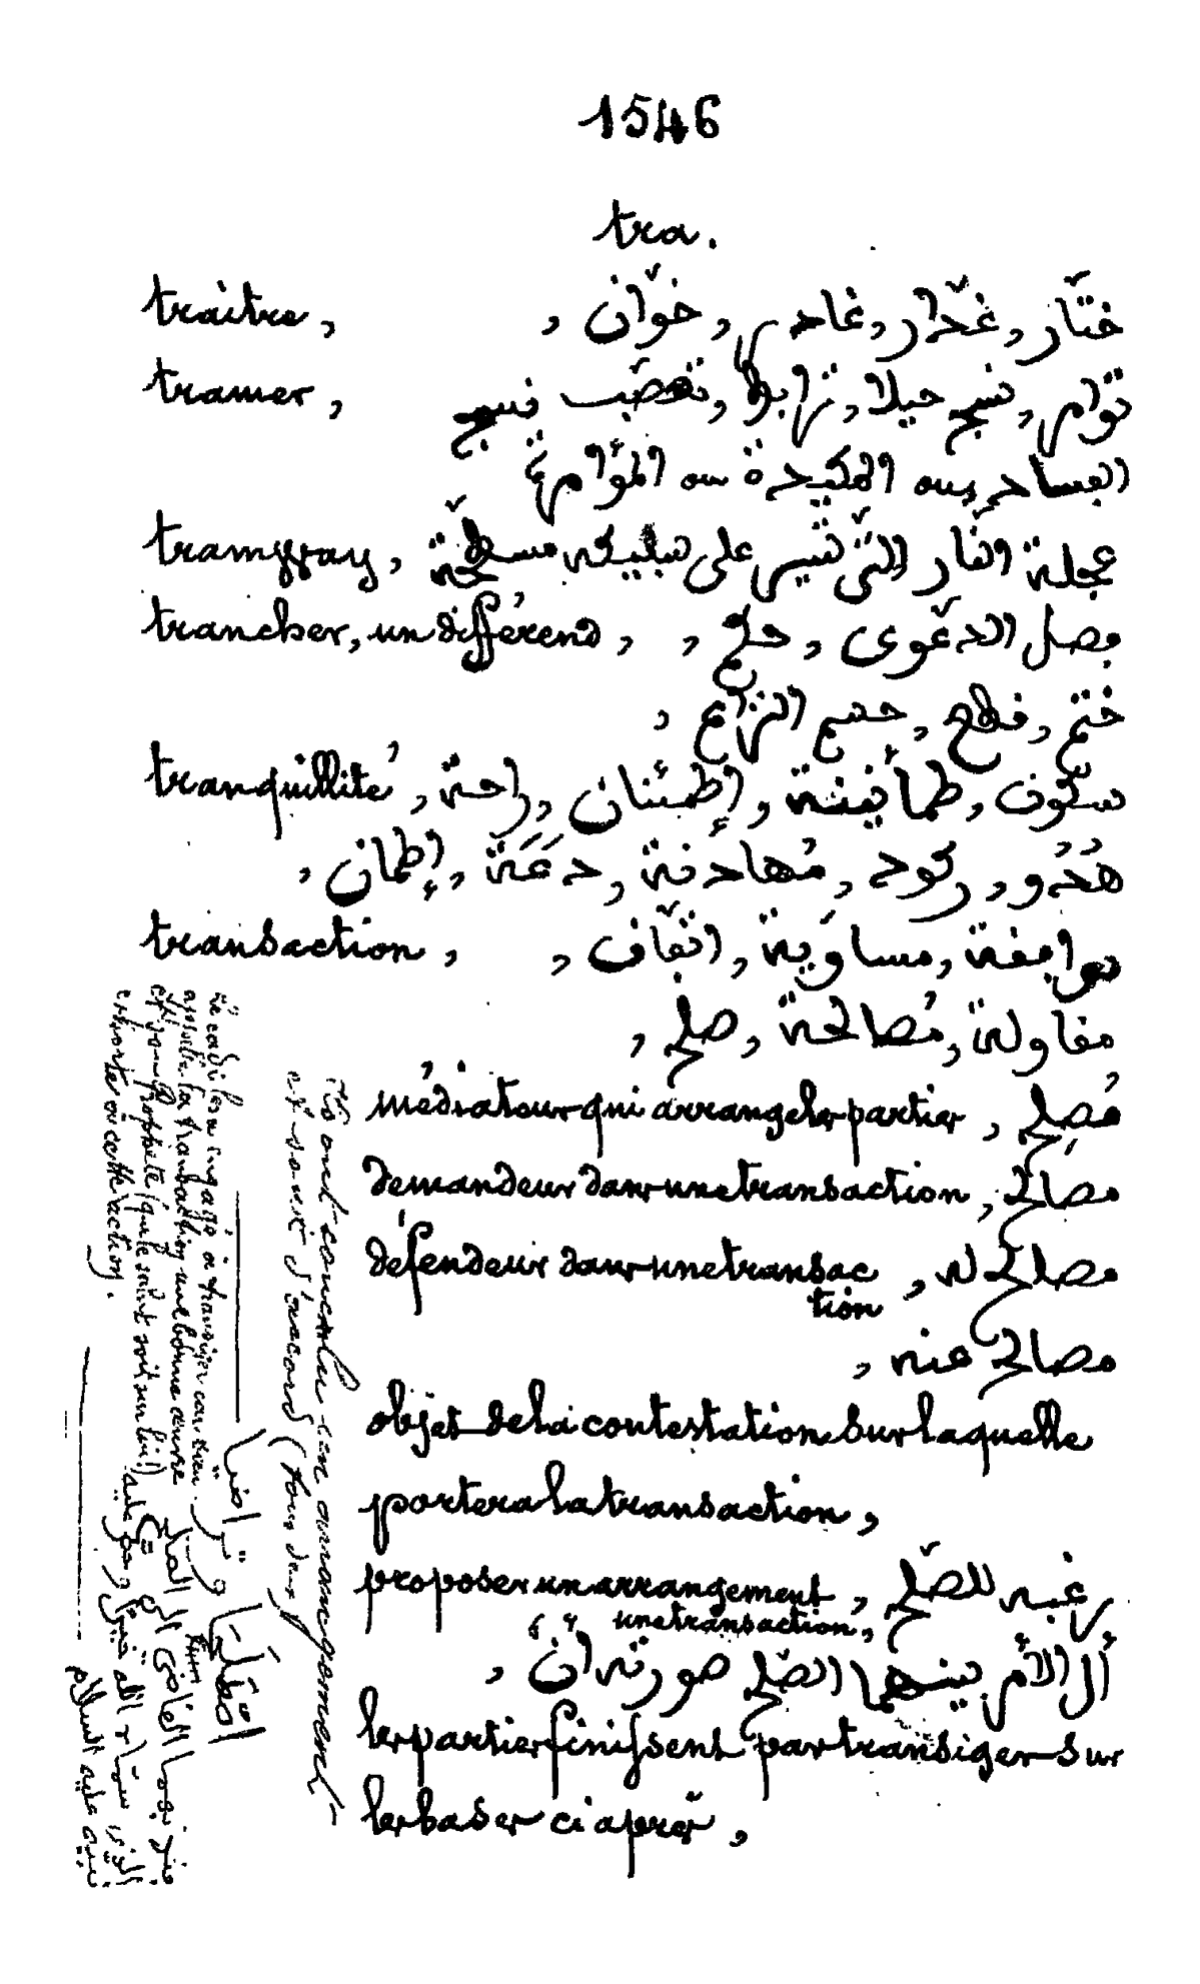 1546
tra.
traitre, ختّار, غدّار, غادر, خوّان,
tramer, توامر, نسج حيلا, ترابط, تعصّب نسج
الدسائس المكيدة المؤامرة
tramway, عجلة النّار التّى تسير على سبيكه مسطّحة
trancher, un différend, فصل الدعّوى, حلّ,
ختم, قطع, حسم النزاع,
tranquillité, سكون, طمأنينة, إطمئنان, راحة,
هُدُو, ركود, مُهادنة, دعَة, إطمان,
transaction, موافقة, مساوية, اتّفاق,
مقاولة, مُصالحة, صلح,
médiateur qui arrange les parties, مُصلِح
demandeur dans une transaction, مصالح
défendeur dans une transaction, مصالح له
مصالح عنه,
objet de la contestation sur laquelle
portera la transaction,
proposer un arrangement, رغبه للصّلح
une transaction,
أل الأمر بينهما الصّلح صورته أن,
les parties finissent par transiger sur
les bases ci après,
ils ont conclu un arrangement
et sont d'accord (tous deux) اصطلحا و تراضيا
le cadi les a engagé à transiger car Dieu
appelle la transaction une bonne œuvre
et son Prophète (que le salut soit sur lui!)
exhorte à cette action.